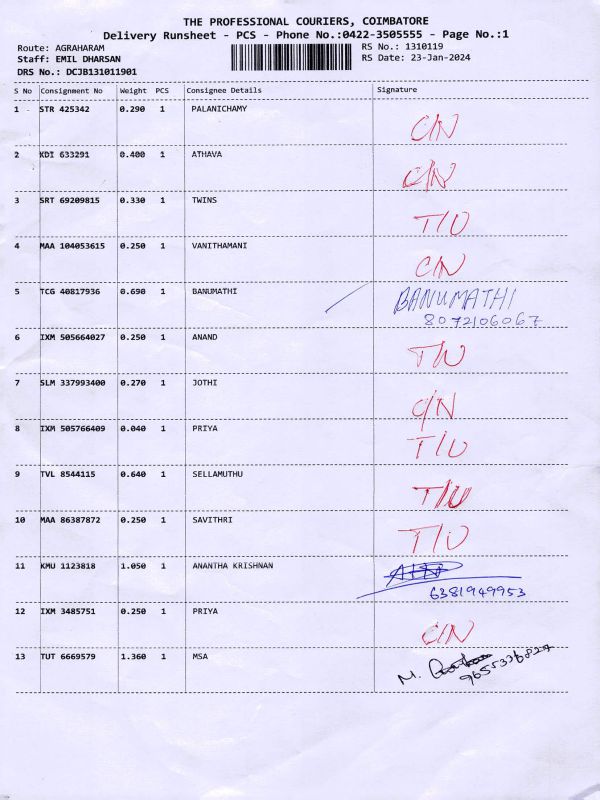 THE PROFESSIONAL COURIERS, COIMBATORE
Delivery Runsheet - PCS - Phone No.:0422-3505555 - Page No.:1
Route: AGRAHARAM RS No.: 1310119
Staff: EMIL DHARSAN RS Date: 23-Jan-2024
DRS No.: DCJB131011901
S No Consignment No Weight PCS Consignee Details Signature
1 STR 425342 0.290 1 PALANICHAMY C/N
2 KDI 633291 0.400 1 ATHAVA C/N
3 SRT 69209815 0.330 1 TWINS T/U
4 MAA 104053615 0.250 1 VANITHAMANI C/N
5 TCG 40817936 0.690 1 BANUMATHI BANUMATHI
8072106067
6 IXM 505664027 0.250 1 ANAND T/U
7 SLM 337993400 0.270 1 JOTHI C/N
8 IXM 505766409 0.040 1 PRIYA T/U
9 TVL 8544115 0.640 1 SELLAMUTHU T/U
10 MAA 86387872 0.250 1 SAVITHRI T/U
11 KMU 1123818 1.050 1 ANANTHA KRISHNAN
6381949953
12 IXM 3485751 0.250 1 PRIYA C/N
13 TUT 6669579 1.360 1 MSA M.